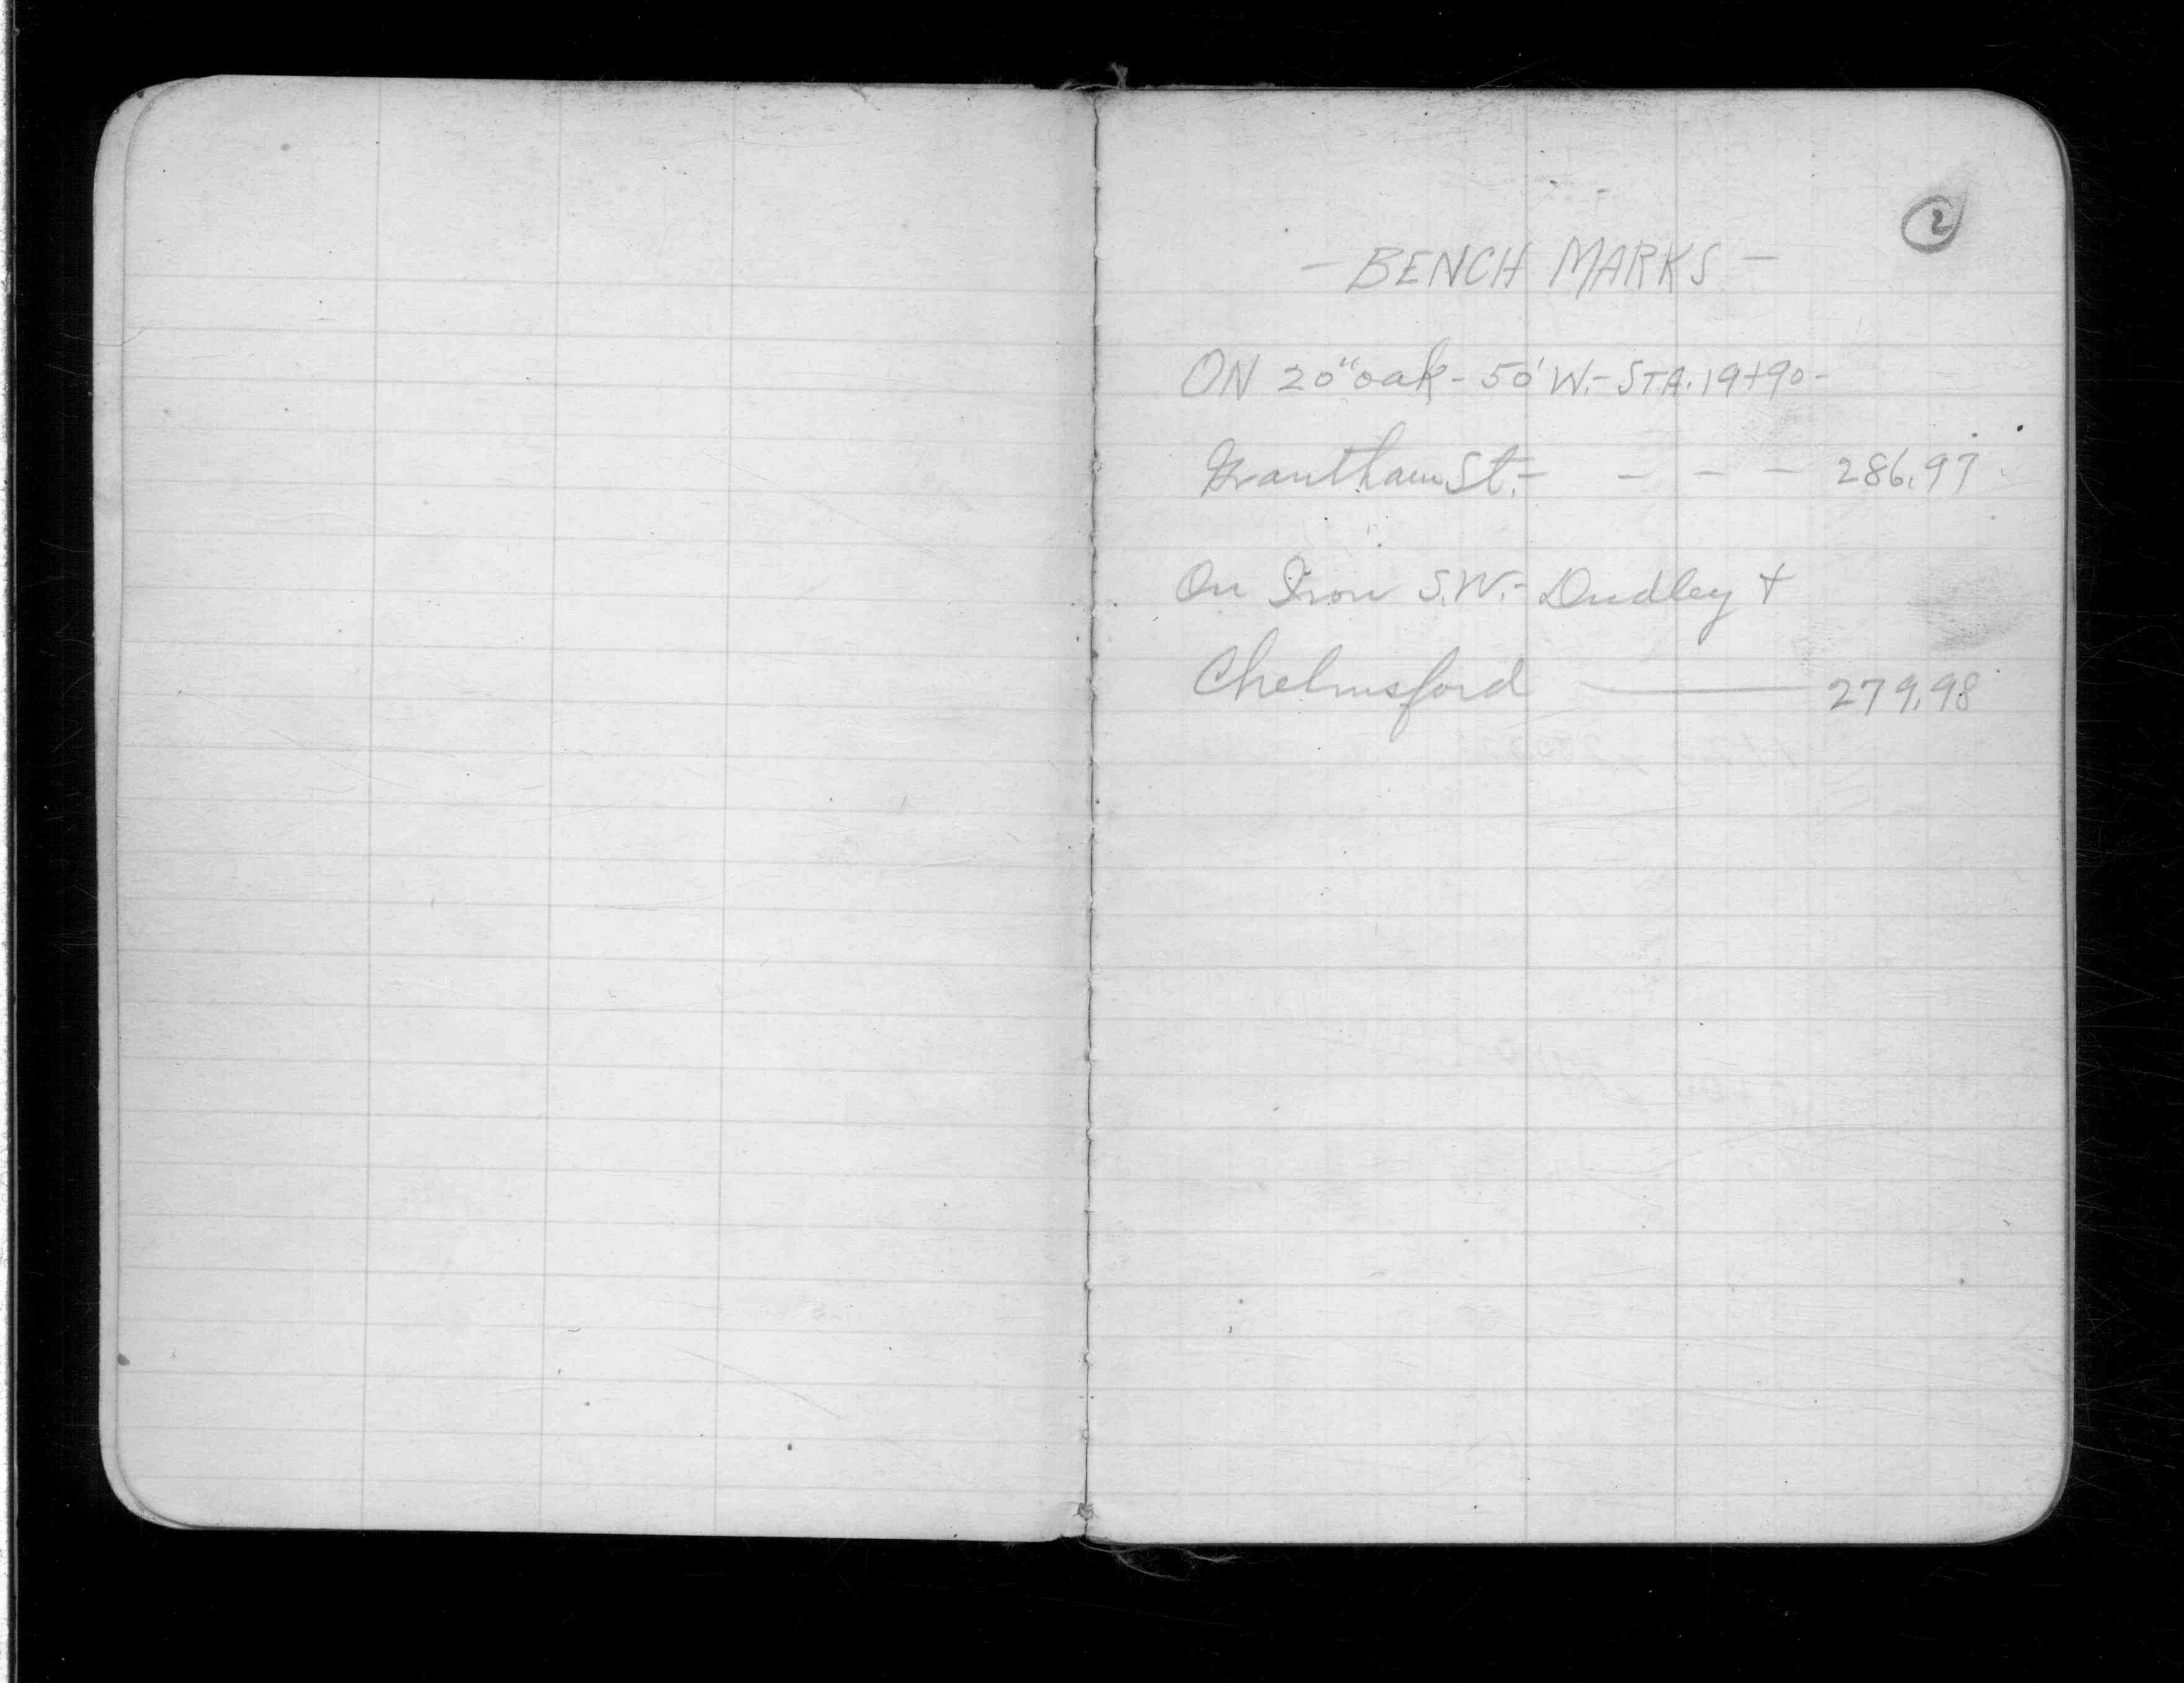 2
- BENCH MARKS -
ON 20" oak - 50' W. - STA. 19+90 -
Grantham St. - - - - 286.97
On Iron S.W. - Dudley +
Chelmsford — 279.98